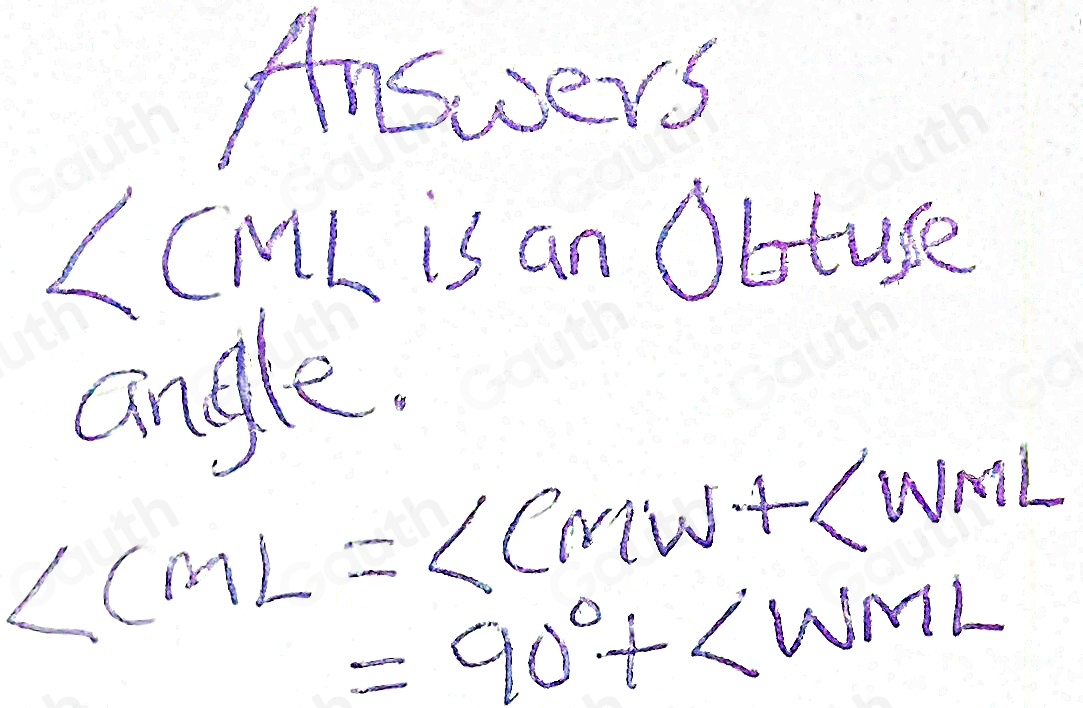 Answers
<CML is an Obtuse
angle.
<CML = <CMW + <WML
= 90° + <WML